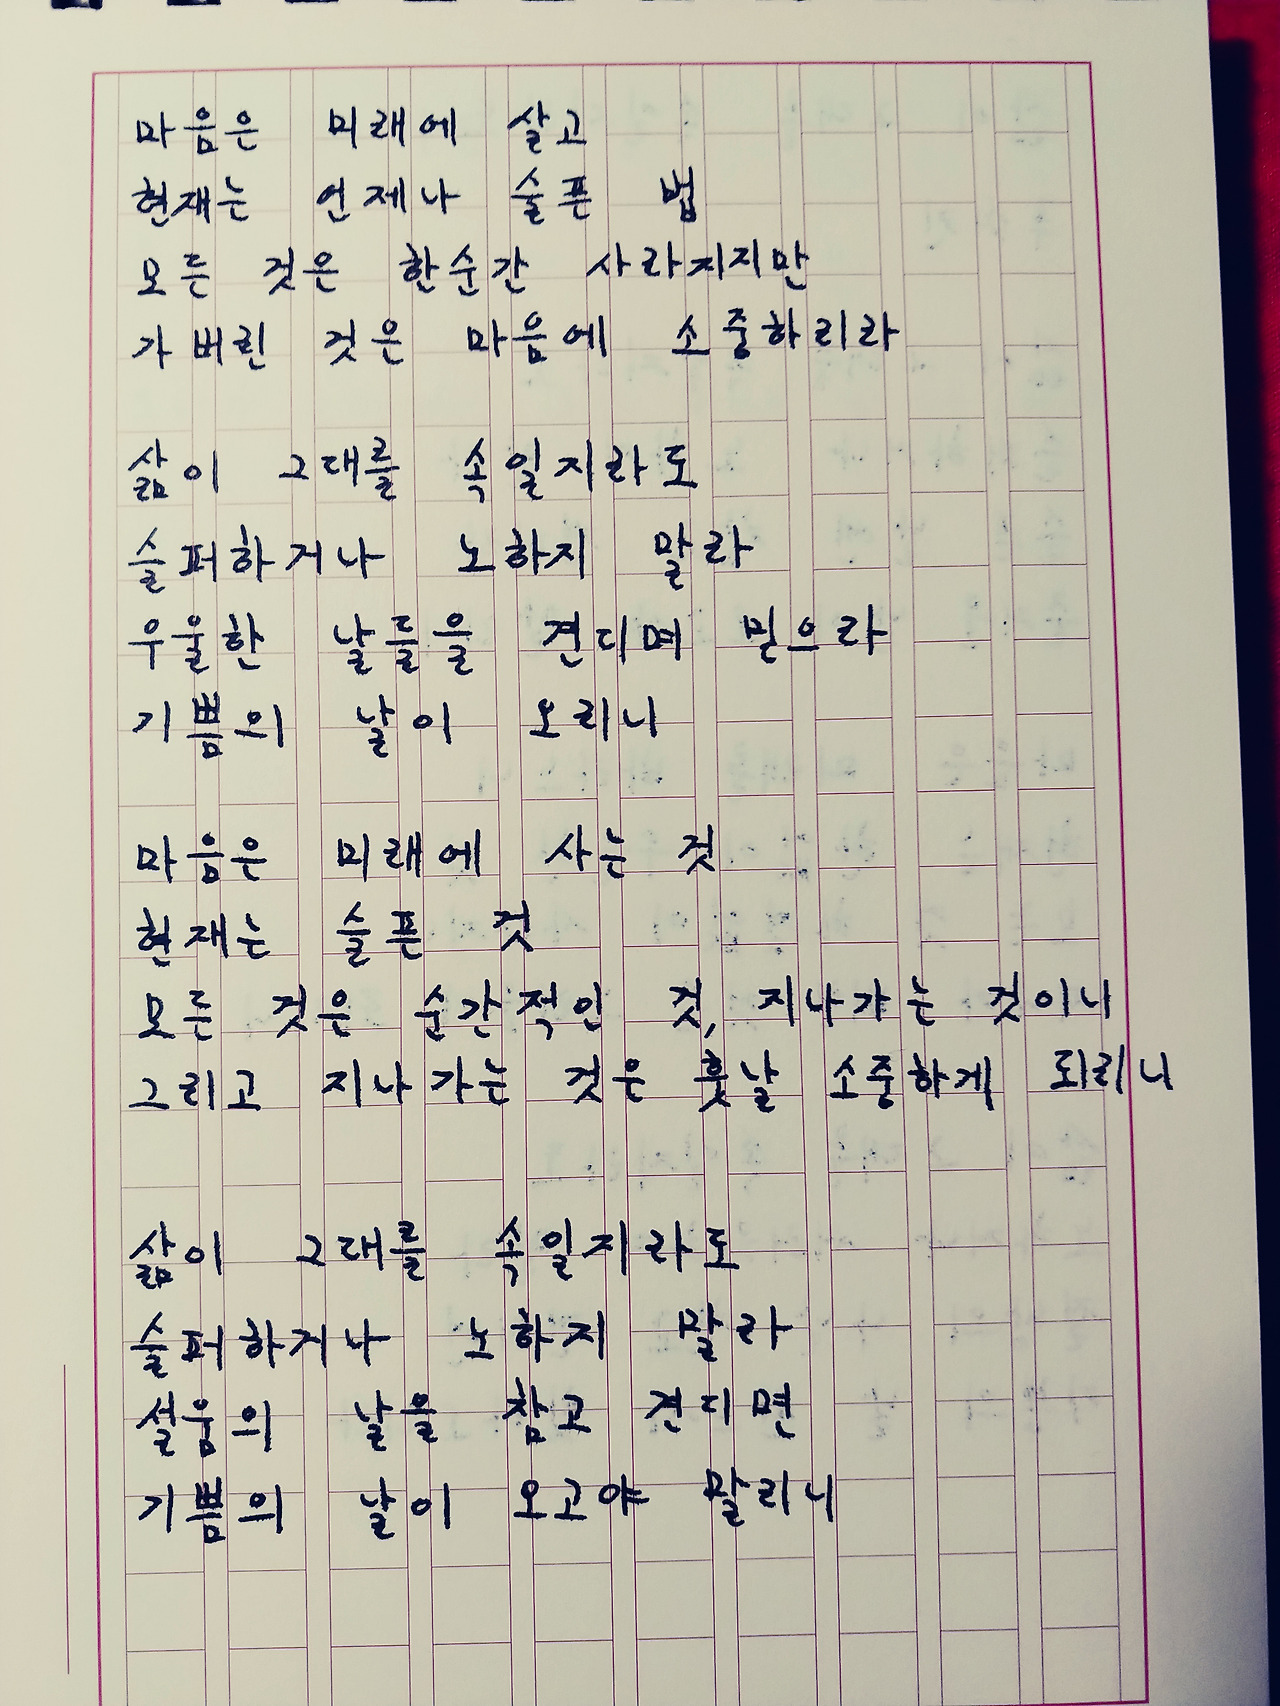 마음은 미래에 살고
현재는 언제나 슬픈 법
모든 것은 한순간 사라지지만
가버린 것은 마음에 소중하리라
삶이 그대를 속일지라도
슬퍼하거나 노하지 말라
우울한 날들을 견디며 믿으라
기쁨의 날이 오리니
마음은 미래에 사는 것
현재는 슬픈 것
모든 것은 순간적인 것, 지나가는 것이니
그리고 지나가는 것은 훗날 소중하게 되리니
삶이 그대를 속일지라도
슬퍼하거나 노하지 말라
설움의 날을 참고 견디면
기쁨의 날이 오고야 말리니